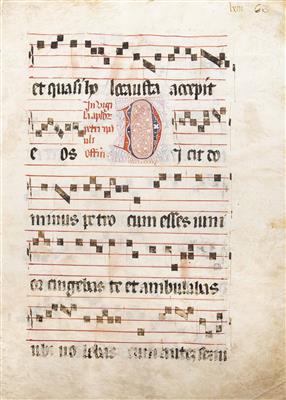 lxiii 63
et quasi ho locausta accepit
In vigi
e os D icit do
minus petro cum esses iuni
or cingebas te et ambulabas
ubi volebas cum autem senu